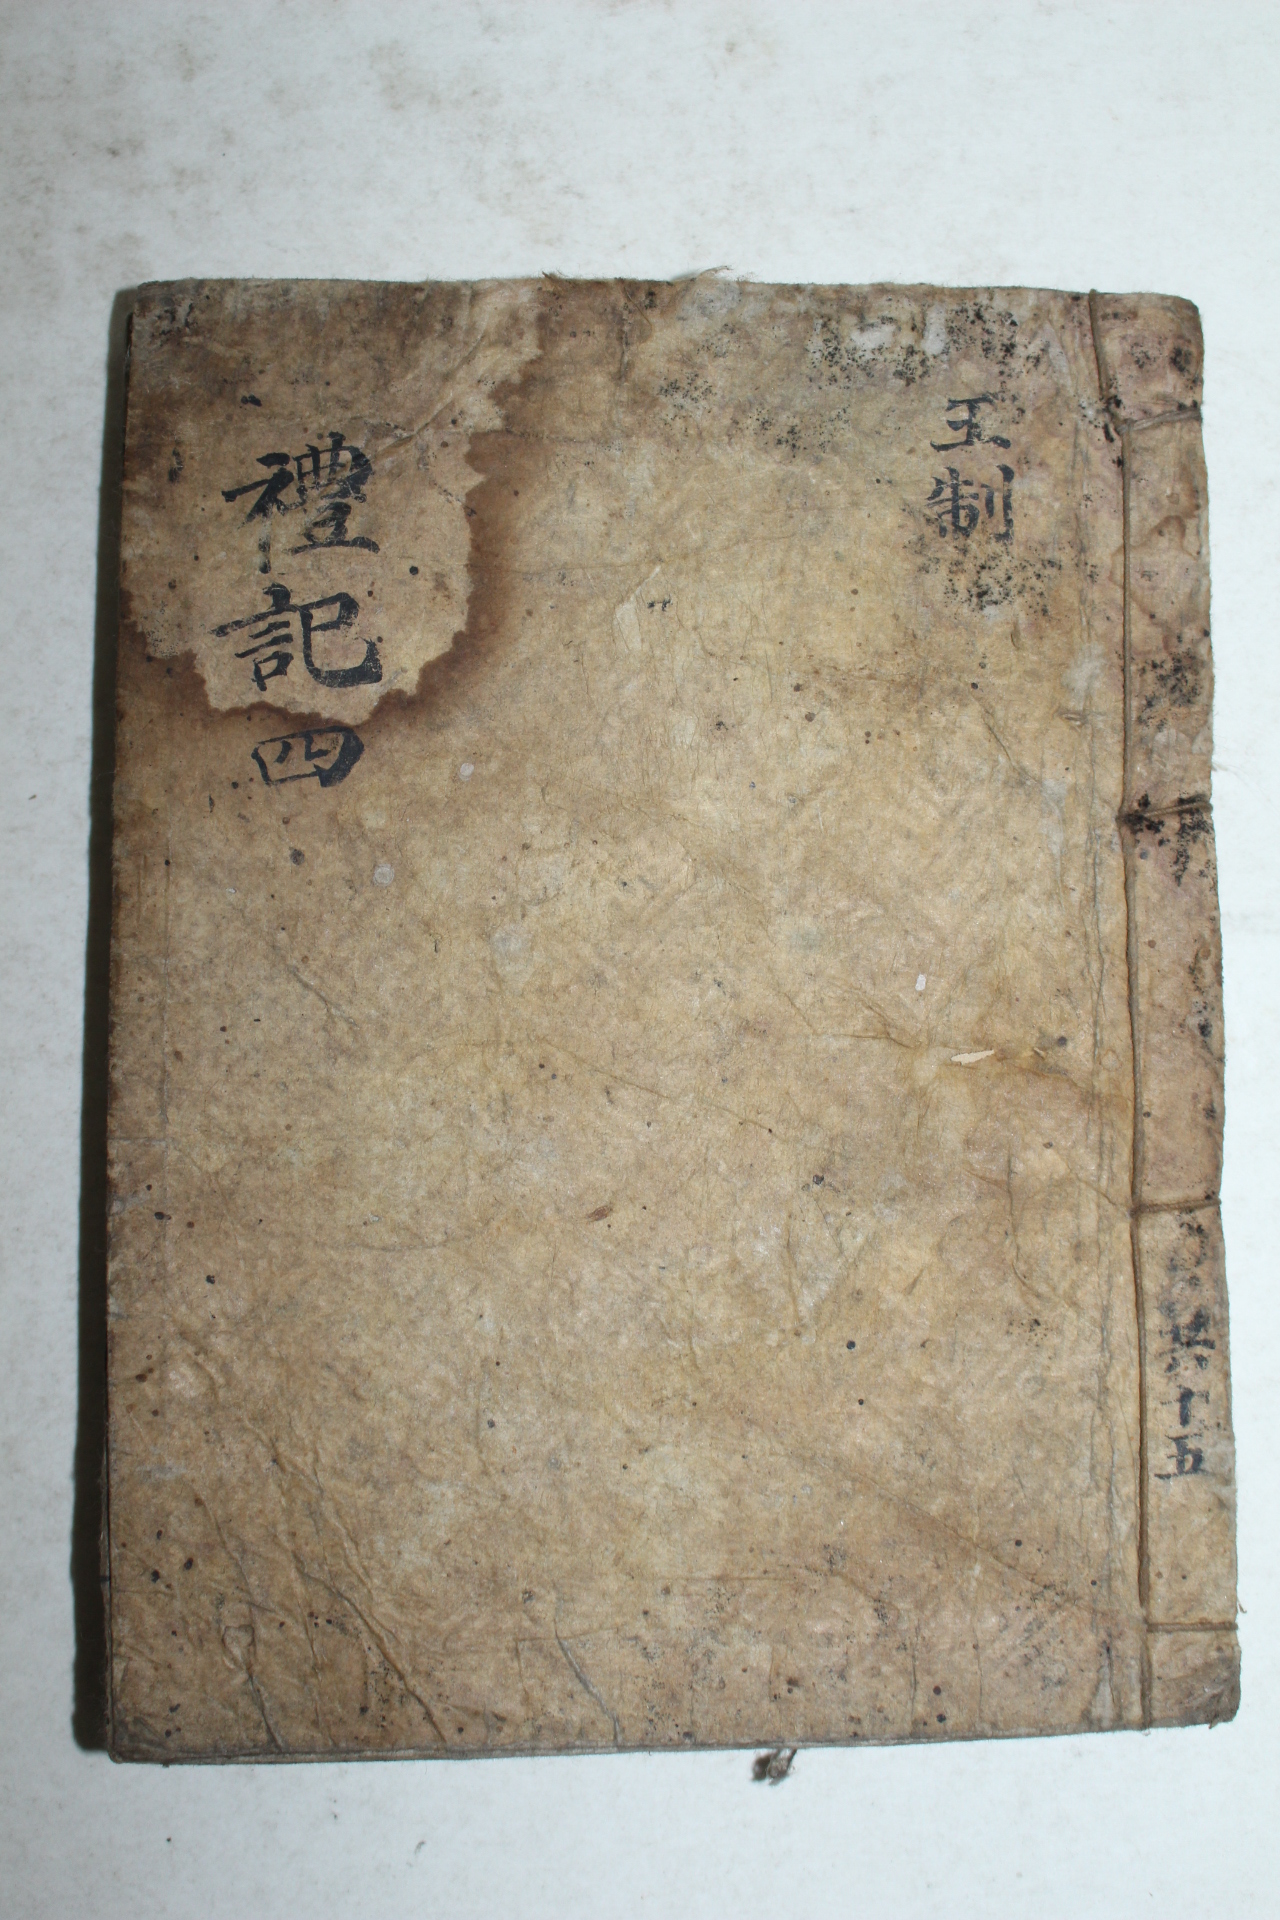 王制
禮記四
共十五